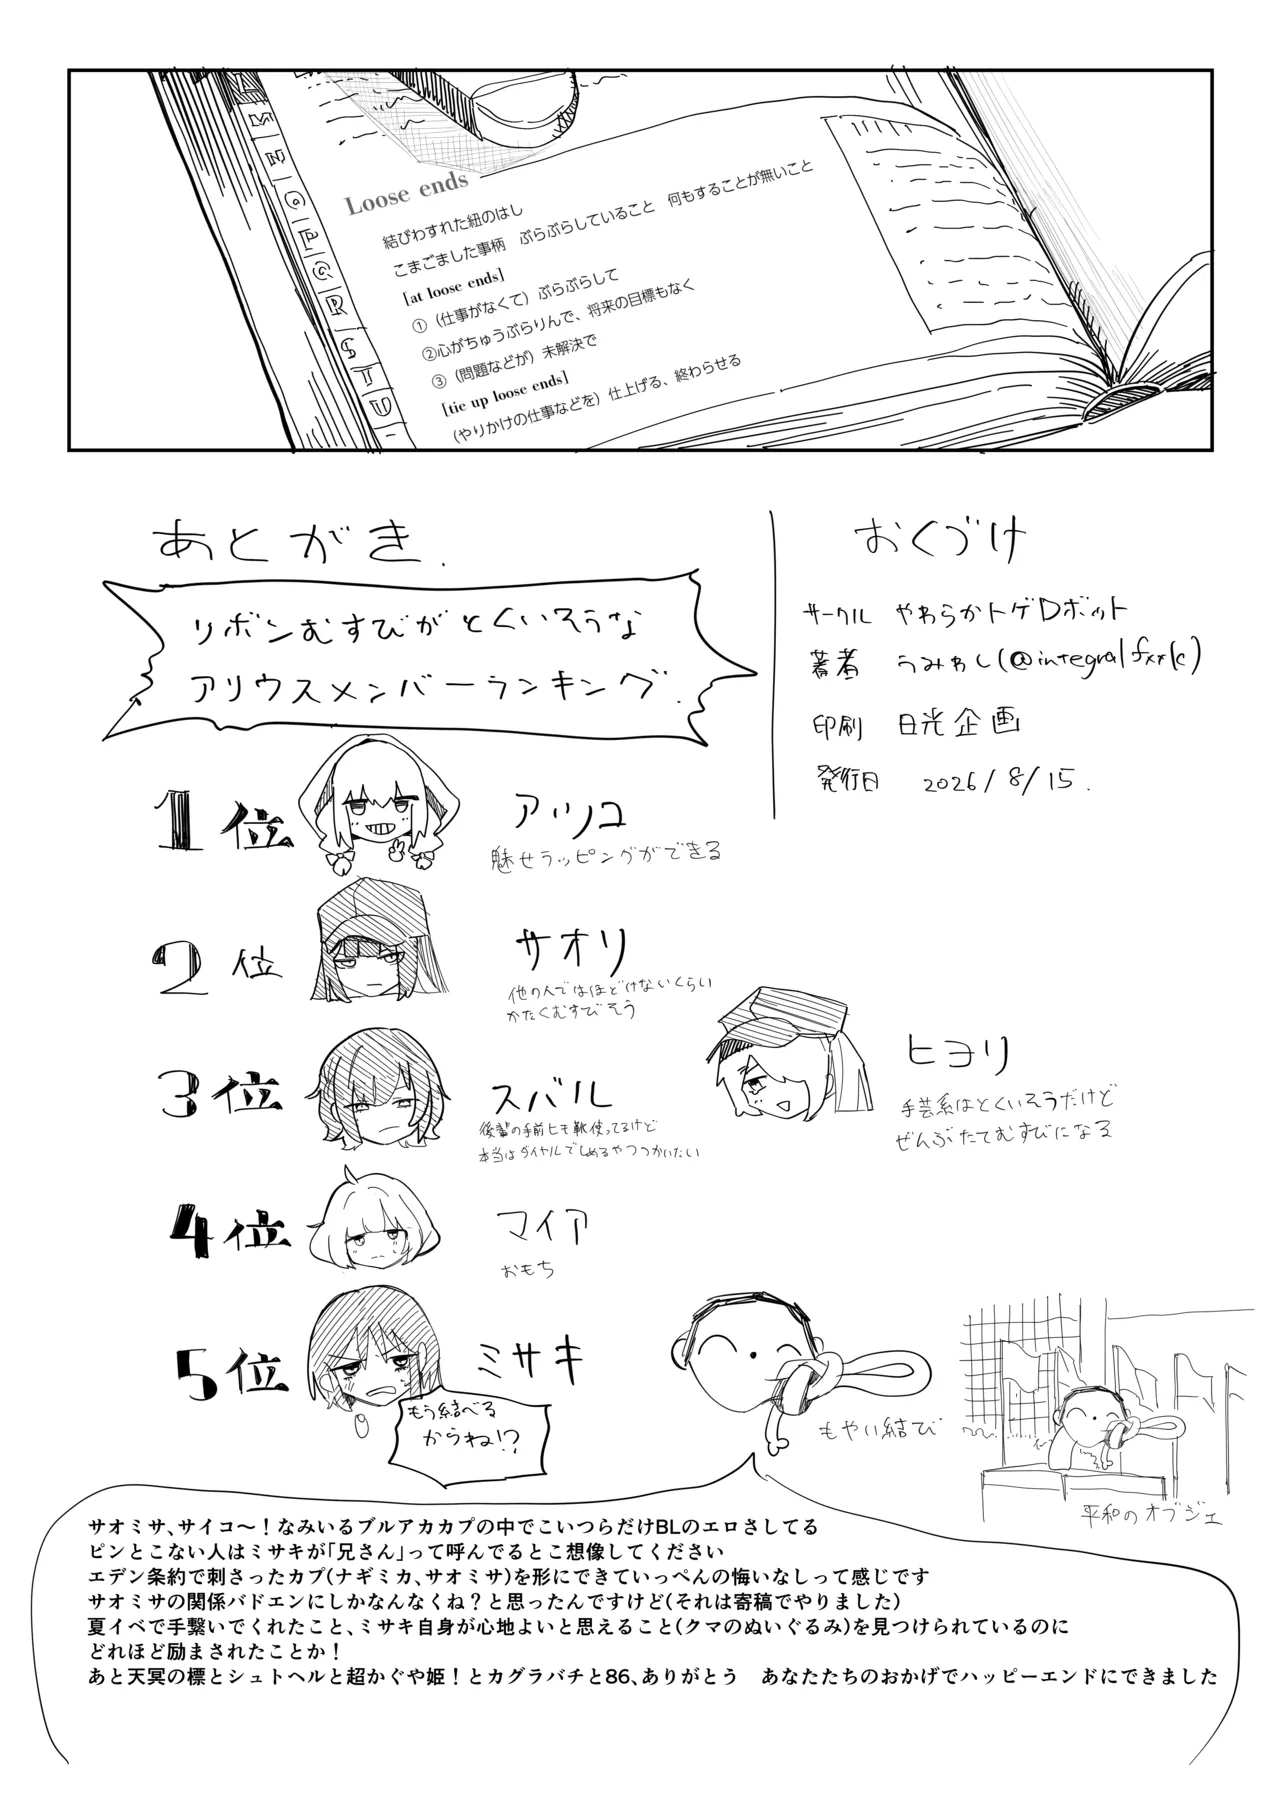 M
N
O
P
Q
R
S
T
U
Loose ends
結びわすれた紐のはし
こまごました事柄　ぶらぶらしていること　何もすることが無いこと
[at loose ends]
①（仕事がなくて）ぶらぶらして
②心がちゅうぶらりんで、将来の目標もなく
③（問題などが）未解決で
[tie up loose ends]
（やりかけの仕事などを）仕上げる、終わらせる
あとがき.
リボンむすびがとくいそうな
アリウスメンバーランキング.
1位
アツコ
魅せラッピングができる
2位
サオリ
他の人ではほどけないくらい
かたくむすびそう
3位
スバル
後輩の手前ヒモ靴使ってるけど
本当はダイヤルでしめるやつつかいたい
ヒヨリ
手芸系はとくいそうだけど
ぜんぶたてむすびになる
4位
マイア
おもち
5位
ミサキ
もう結べる
からね!?
もやい結び
平和のオブジェ
おくづけ
サークル　やわらかトゲロボット
著者　うみわし(@integralfxxk)
印刷　日光企画
発行日　2026/8/15.
サオミサ、サイコ〜！なみいるブルアカカプの中でこいつらだけBLのエロさしてる
ピンとこない人はミサキが「兄さん」って呼んでるとこ想像してください
エデン条約で刺さったカプ(ナギミカ、サオミサ)を形にできていっぺんの悔いなしって感じです
サオミサの関係バドエンにしかなんなくね？と思ったんですけど(それは寄稿でやりました)
夏イベで手繋いでくれたこと、ミサキ自身が心地よいと思えること(クマのぬいぐるみ)を見つけられているのに
どれほど励まされたことか！
あと天冥の標とシュトヘルと超かぐや姫！とカグラバチと86、ありがとう　あなたたちのおかげでハッピーエンドにできました